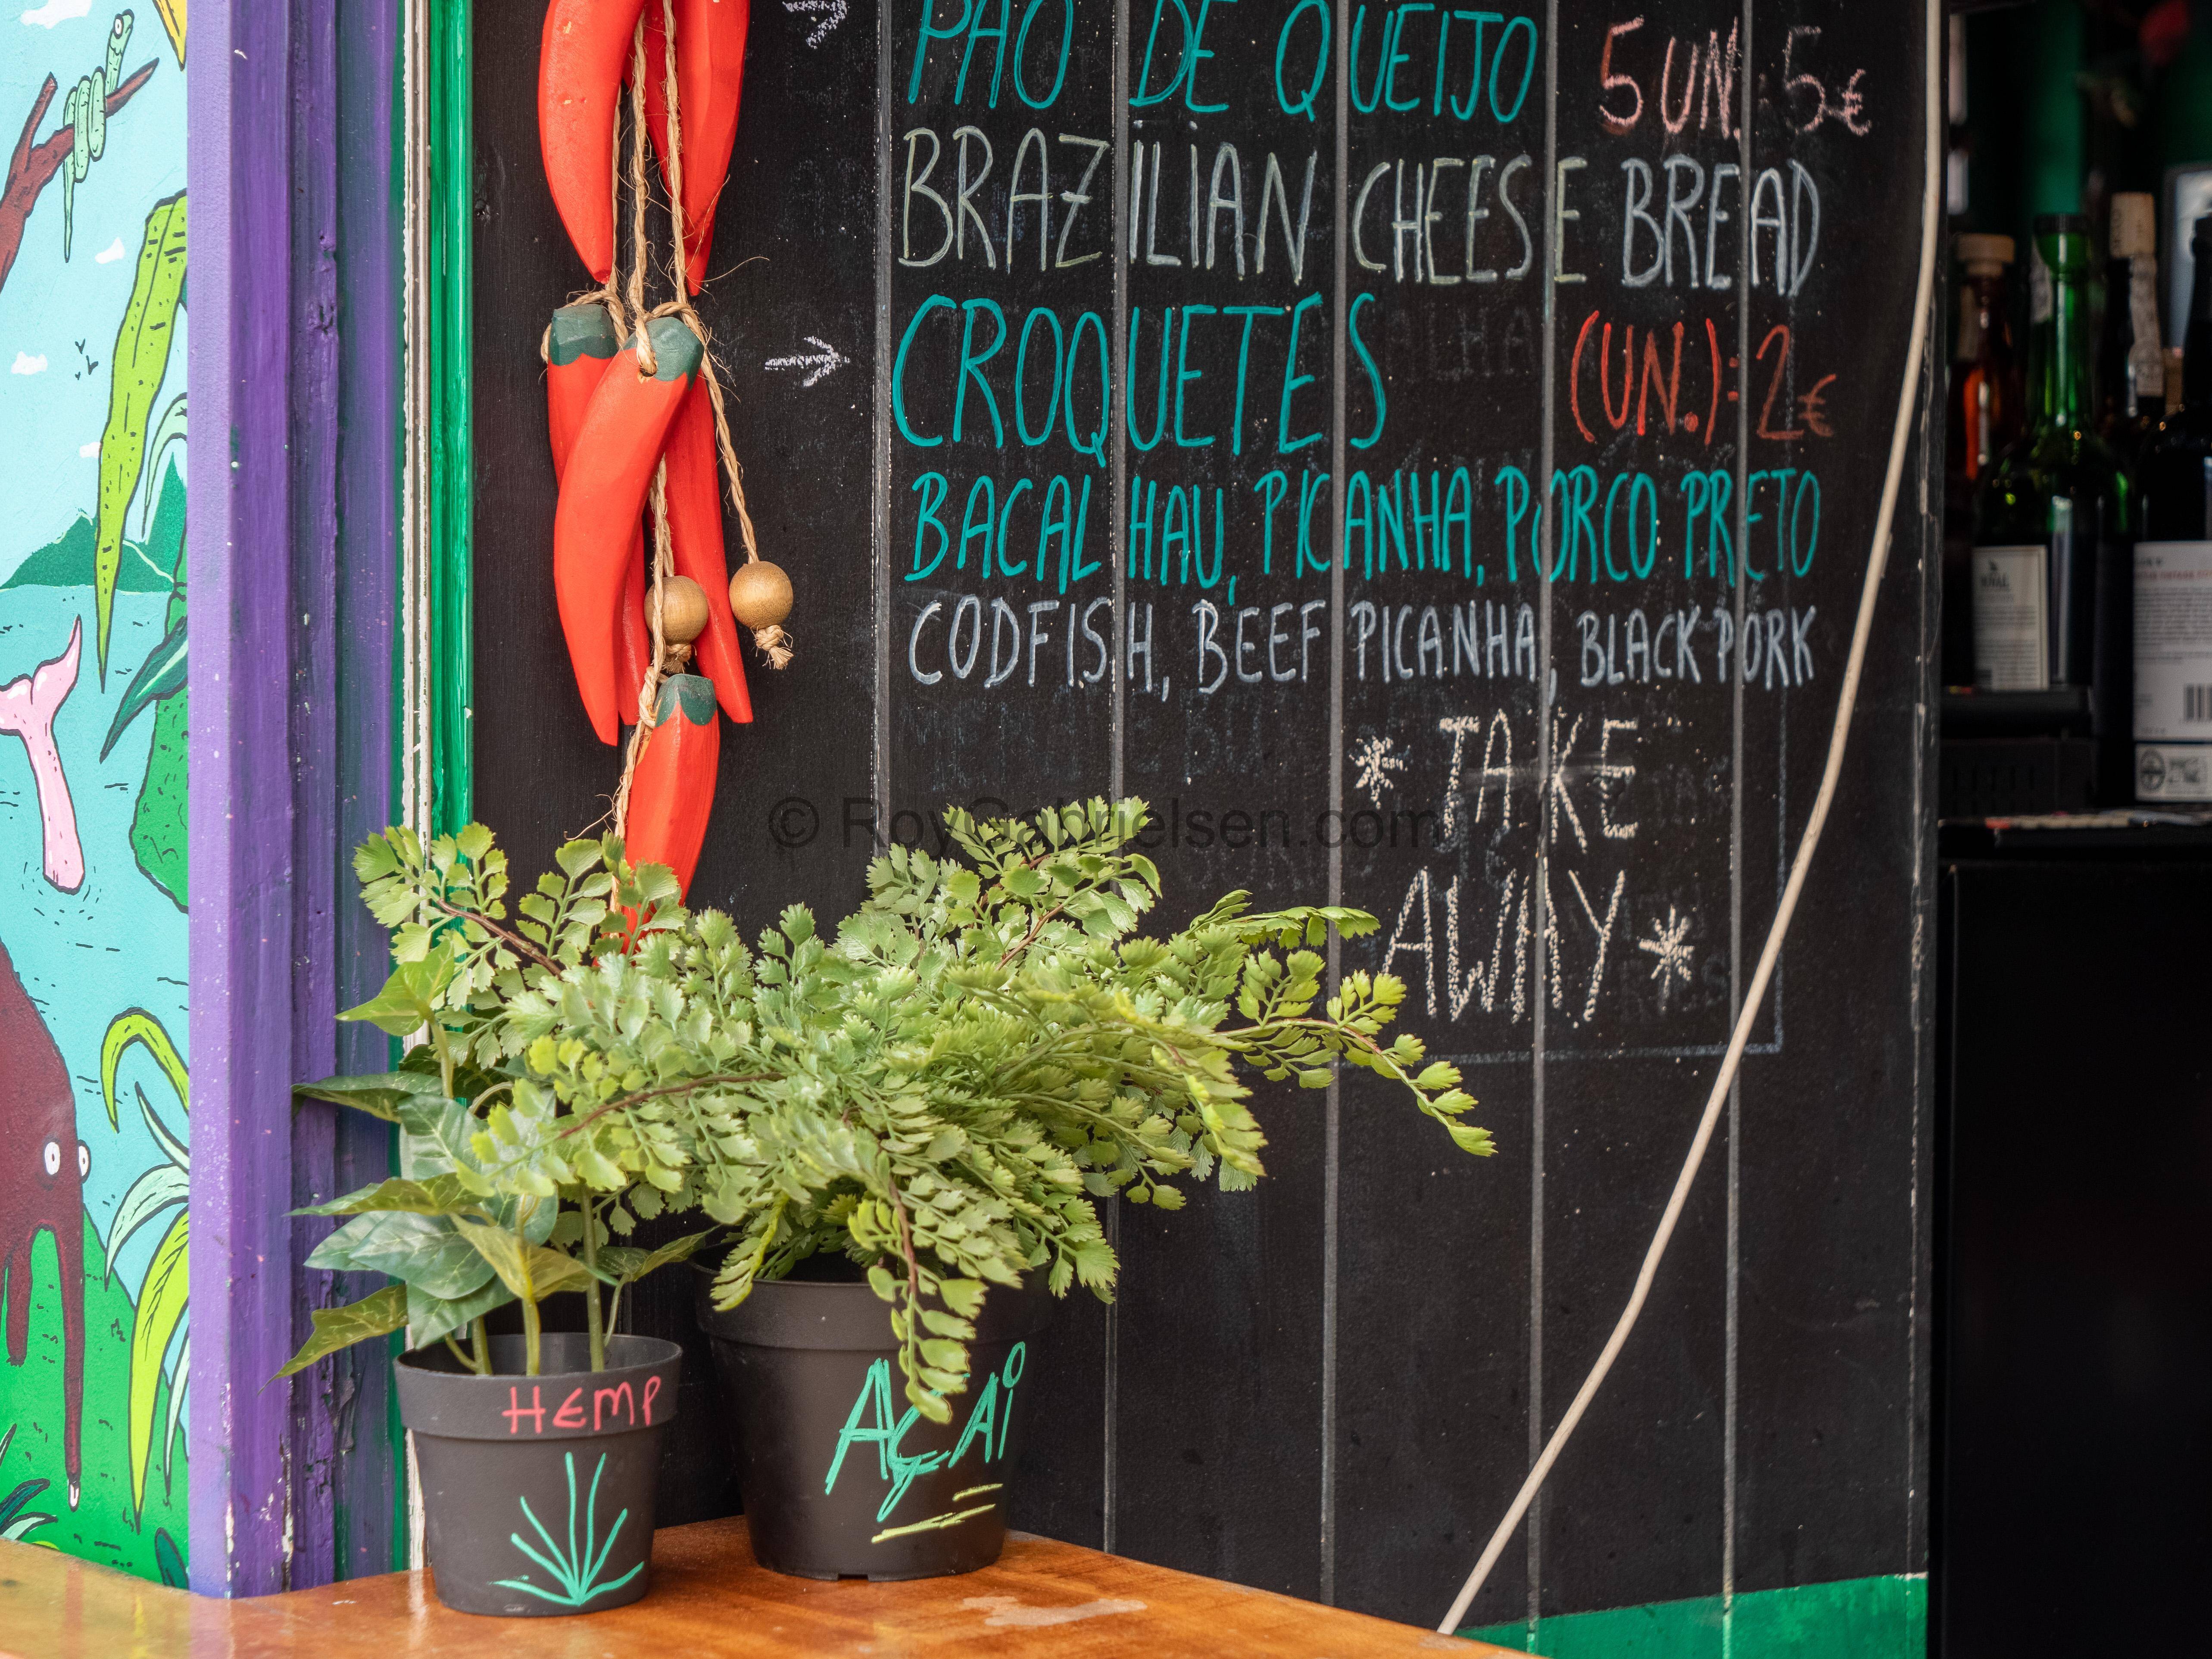 PÃO DE QUEIJO 5 UN. 5€
BRAZILIAN CHEESE BREAD
CROQUETES (UN.): 2€
BACALHAU, PICANHA, PORCO PRETO
CODFISH, BEEF PICANHA, BLACK PORK
* TAKE
AWAY *
© RoyGabrielsen.com
HEMP
AÇAÍ